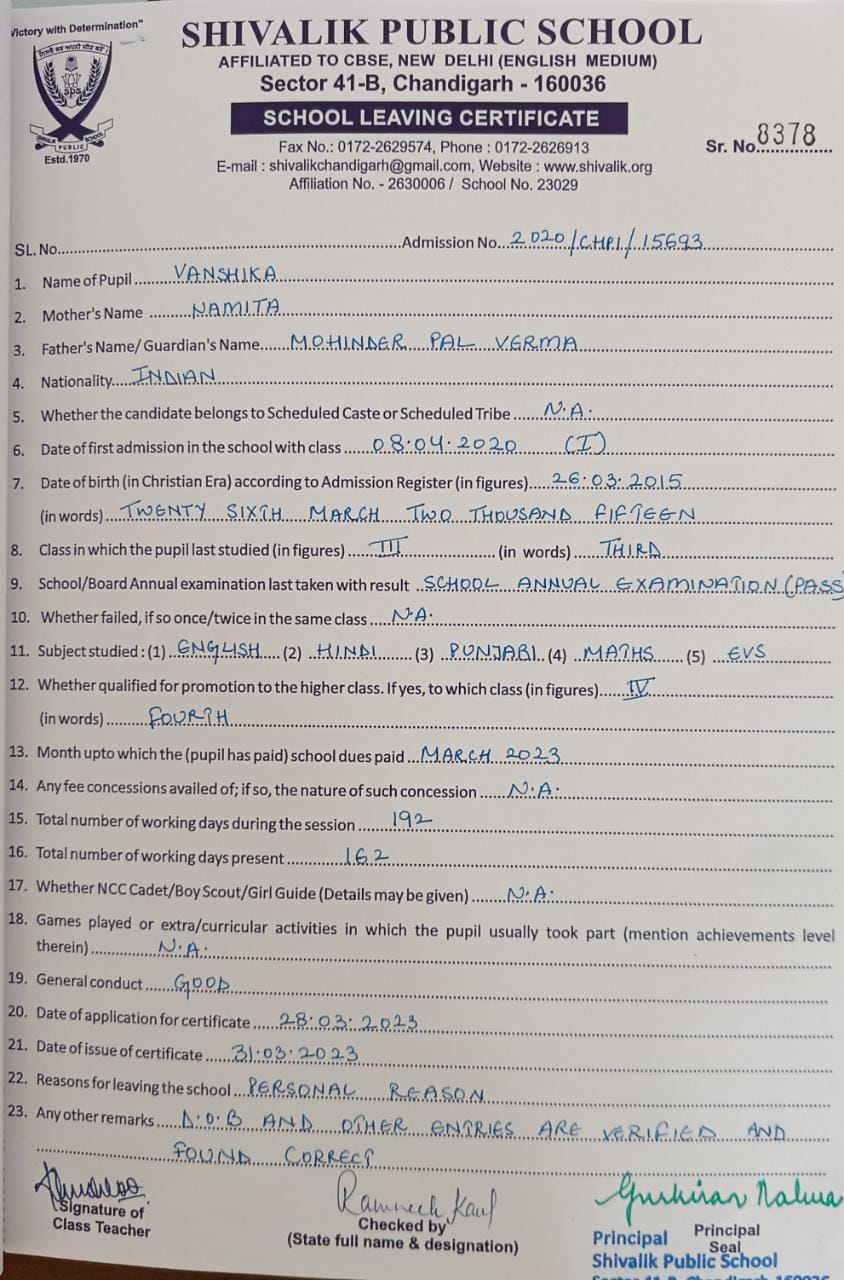 Victory with Determination"
SHIVALIK PUBLIC SCHOOL
AFFILIATED TO CBSE, NEW DELHI (ENGLISH MEDIUM)
Sector 41-B, Chandigarh - 160036
SCHOOL LEAVING CERTIFICATE
SPS
SHIVALIK PUBLIC SCHOOL
Estd.1970
Fax No.: 0172-2629574, Phone : 0172-2626913
Sr. No. 8378
E-mail : shivalikchandigarh@gmail.com, Website : www.shivalik.org
Affiliation No. - 2630006 / School No. 23029
SL. No. Admission No. 2020/CHPI/15693
1. Name of Pupil VANSHIKA
2. Mother's Name NAMITA
3. Father's Name/ Guardian's Name MOHINDER PAL VERMA
4. Nationality INDIAN
5. Whether the candidate belongs to Scheduled Caste or Scheduled Tribe N.A.
6. Date of first admission in the school with class 08.04.2020 (I)
7. Date of birth (in Christian Era) according to Admission Register (in figures) 26.03.2015
(in words) TWENTY SIXTH MARCH TWO THOUSAND FIFTEEN
8. Class in which the pupil last studied (in figures) III (in words) THIRD
9. School/Board Annual examination last taken with result SCHOOL ANNUAL EXAMINATION (PASS
10. Whether failed, if so once/twice in the same class N.A.
11. Subject studied : (1) ENGLISH (2) HINDI (3) PUNJABI (4) MATHS (5) EVS
12. Whether qualified for promotion to the higher class. If yes, to which class (in figures) IV
(in words) FOURTH
13. Month upto which the (pupil has paid) school dues paid MARCH 2023
14. Any fee concessions availed of; if so, the nature of such concession N.A.
15. Total number of working days during the session 192
16. Total number of working days present 162
17. Whether NCC Cadet/Boy Scout/Girl Guide (Details may be given) N.A.
18. Games played or extra/curricular activities in which the pupil usually took part (mention achievements level
therein) N.A.
19. General conduct GOOD
20. Date of application for certificate 28.03.2023
21. Date of issue of certificate 31.03.2023
22. Reasons for leaving the school PERSONAL REASON
23. Any other remarks D.O.B AND OTHER ENTRIES ARE VERIFIED AND
FOUND CORRECT
Ramneek Kaul
Gurkiran Nalwa
Signature of
Class Teacher
Checked by
(State full name & designation)
Principal
Seal
Principal
Shivalik Public School